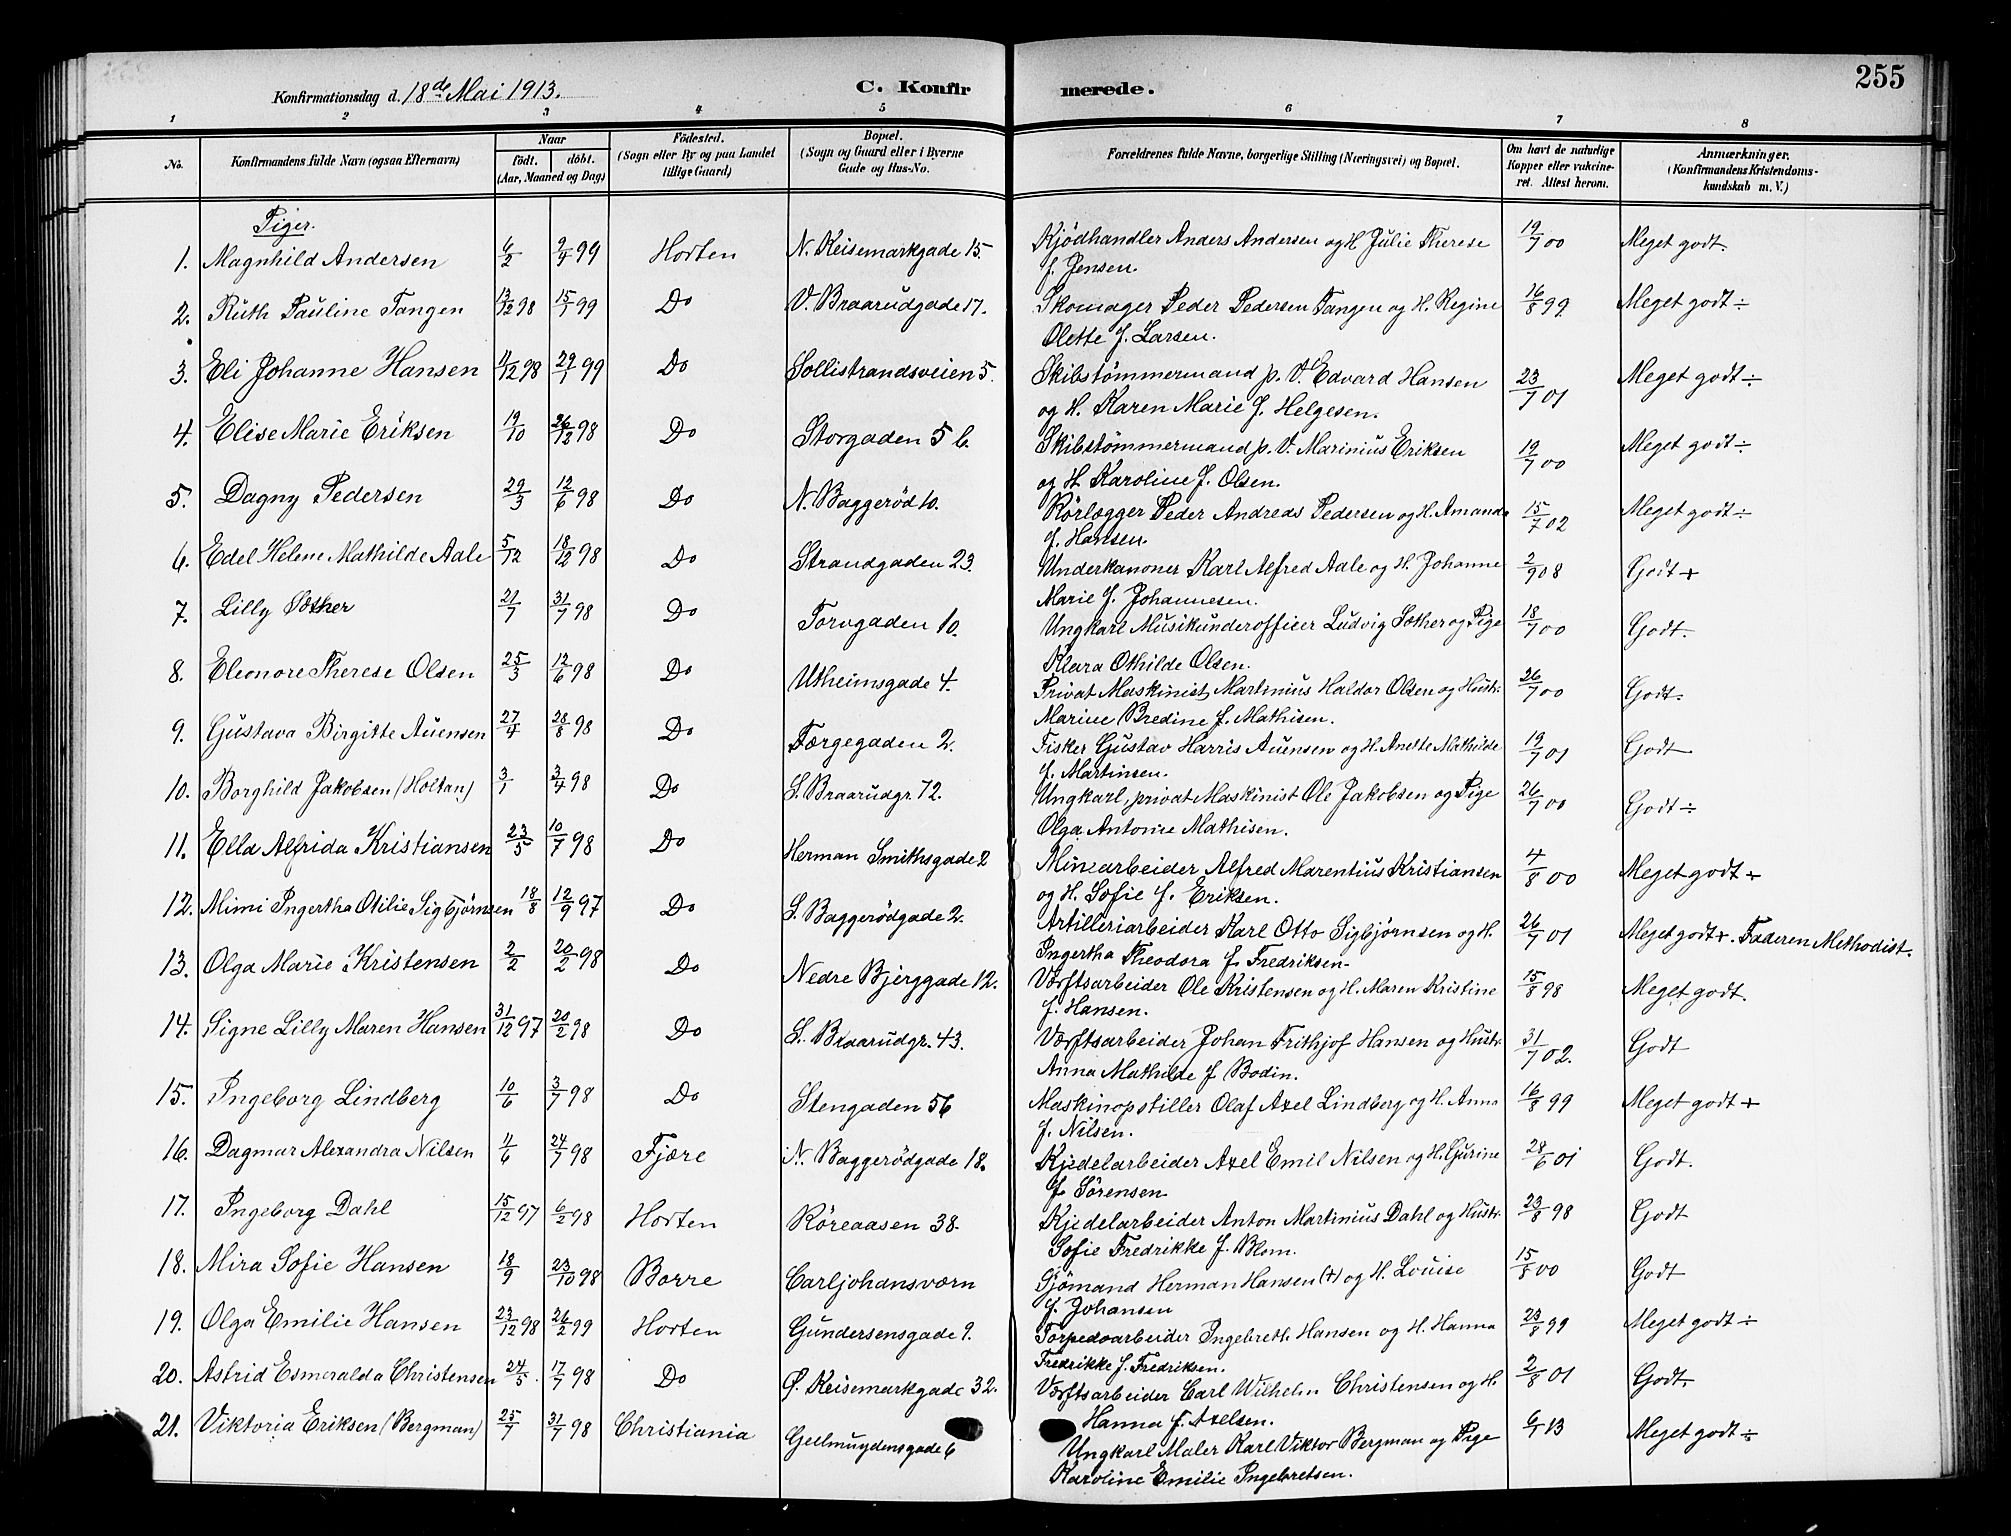 Konfirmationsdag d. 18de Mai 1913.
C. Konfir
merede.
255
1 2 3 4 5 6 7 8
No.
Konfirmandens fulde Navn (ogsaa Efternavn)
Naar
födt. döbt.
(Aar, Maaned og Dag)
Födested.
(Sogn eller By og paa Landet
tillige Gaard)
Bopæl.
(Sogn og Gaard eller i Byerne
Gade og Hus-No.
Forældrenes fulde Navne, borgerlige Stilling (Næringsvei) og Bopæl.
Om havt de naturlige
Kopper eller vakcine-
ret. Attest herom.
Anmærkninger.
(Konfirmandens Kristendoms-
kundskab m. V.)
Piger.
1. Magnhild Andersen 6/2 9/4 99 Horten N. Keisemarkgade 15. Kjödhandler Anders Andersen og H. Julie Therese 19/7 00 Meget godt.
f. Jensen.
2. Ruth Pauline Tangen 13/12 98 15/1 99 Do V. Braarudgade 17. Skomager Peder Pedersen Tangen og H. Regine 16/8 99 Meget godt ÷
Olette f. Larsen.
3. Eli Johanne Hansen 4/12 98 29/1 99 Do Sollistrandsveien 5. Skibstömmermand p. V. Edvard Hansen 23/7 01 Meget godt ÷
og H. Karen Marie f. Helgesen.
4. Elise Marie Eriksen 19/10 26/12 98 Do Storgaden 56 Skibstömmermand p. V. Marinius Eriksen 19/7 00 Meget godt ÷
og H. Karoline f. Olsen.
5. Dagny Pedersen 29/3 12/6 98 Do N. Baggeröd 10. Rörlægger Peder Andreas Pedersen og H. Amanda 15/7 02 Meget godt ÷
f. Hansen.
6. Edel Helene Mathilde Aale 5/12 18/12 98 Do Strandgaden 23. Underkanoner Karl Alfred Aale og H. Johanne 2/9 08 Godt +
Marie f. Johannesen.
7. Lilly Sæther 21/7 31/7 98 Do Torvgaden 10. Ungkarl Musikunderofficer Ludvig Sæther og Pige 18/7 00 Godt.
Klara Othilde Olsen.
8. Eleonore Therese Olsen 25/3 12/6 98 Do Utheimsgade 4. Privat Maskinist Martinius Haldor Olsen og Hustr. 26/7 00 Godt.
Marine Bredine f. Mathisen.
9. Gustava Birgitte Auensen 27/4 28/8 98 Do Færgegaden 2. Fisker Gustav Harris Auensen og H. Anette Mathilde 19/7 01 Godt
f. Martinsen.
10. Borghild Jakobsen (Holtan) 3/1 3/4 98 Do S. Braarudgr. 72. Ungkarl, privat Maskinist Ole Jakobsen og Pige 26/7 00 Godt ÷
Olga Antonie Mathisen.
11. Ella Alfrida Kristiansen 23/5 10/7 98 Do Herman Smithsgade 2 Minearbeider Alfred Marentius Kristiansen 4/8 00 Meget godt +
og H. Sofie f. Eriksen.
12. Mimi Ingertha Otilie Sigbjörnsen 18/8 12/9 97 Do S. Baggerödgade 2. Artilleriarbeider Karl Otto Sigbjörnsen og H. 26/7 01 Meget godt +. Faderen Methodist.
Ingertha Theodora f. Fredriksen.
13. Olga Marie Kristensen 2/2 20/2 98 Do Nedre Bjerggade 12. Værftsarbeider Ole Kristensen og H. Maren Kristine 15/8 98 Meget godt.
f. Hansen.
14. Signe Lilly Maren Hansen 31/12 97 20/2 98 Do S. Braarudgr. 43. Værftsarbeider Johan Frithjof Hansen og Hustr. 31/7 02. Godt
Anna Mathilde f Bodin.
15. Ingeborg Lindberg 10/6 3/7 98 Do Stengaden 56 Maskinopstiller Olaf Axel Lindberg og H. Anna 16/8 99 Meget godt +
f. Nilsen.
16. Dagmar Alexandra Nilsen 4/6 24/7 98 Fjære N. Baggerödgade 18. Kjedelarbeider Axel Emil Nilsen og H. Gurine 28/6 01 Godt.
f. Sörensen
17. Ingeborg Dahl 15/12 97 6/2 98 Horten Röreaasen 38. Kjedelarbeider Anton Martinius Dahl og Hustr. 23/8 98 Godt
Sofie Fredrikke f. Blom.
18. Mira Sofie Hansen 18/9 23/10 98 Borre Carljohansværn Sjömand Herman Hansen (+) og H. Louise 15/8 00 Godt
f. Johansen
19. Olga Emilie Hansen 23/12 98 26/2 99 Horten Gundersensgade 9. Torpedoarbeider Ingebreth Hansen og H. Hanna 23/8 99 Meget godt ÷
Fredrikke f. Fredriksen.
20. Astrid Esmeralda Christensen 24/5. 17/7 98 Do Ö. Keisemarkgade 32. Værftsarbeider Carl Wilhelm Christensen og H. 2/8 01 Godt.
Hanna f. Axelsen.
21. Viktoria Eriksen (Bergman) 25/7 31/7 98 Christiania Gellmuydensgade 6 Ungkarl Maler Karl Viktor Bergman og Pige 6/1 13 Meget godt ÷
Karoline Emilie Ingebretsen.